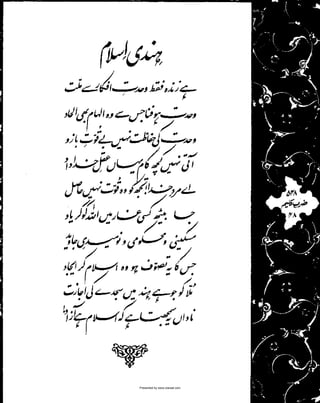 ہندی اسلام
ہے زندہ فقط وحدتِ افکار سے ملت
وحدت ہو فنا جس سے وہ الہام بھی الحاد
وحدت کی حفاظت نہیں بے قوتِ بازو
آتی نہیں کچھ کام یہاں عقلِ خداداد
اے مردِ خدا تجھ کو وہ قوت نہیں حاصل
جا بیٹھ کسی غار میں اللہ کو کر یاد
مسکینی و محکومی و نومیدیِ جاوید
جس کا یہ تصوف ہو وہ اسلام کر ایجاد
ملا کو جو ہے ہند میں سجدے کی اجازت
ناداں یہ سمجھتا ہے کہ اسلام ہے آزاد
۵۳۸
ضربِ کلیم
۲۸